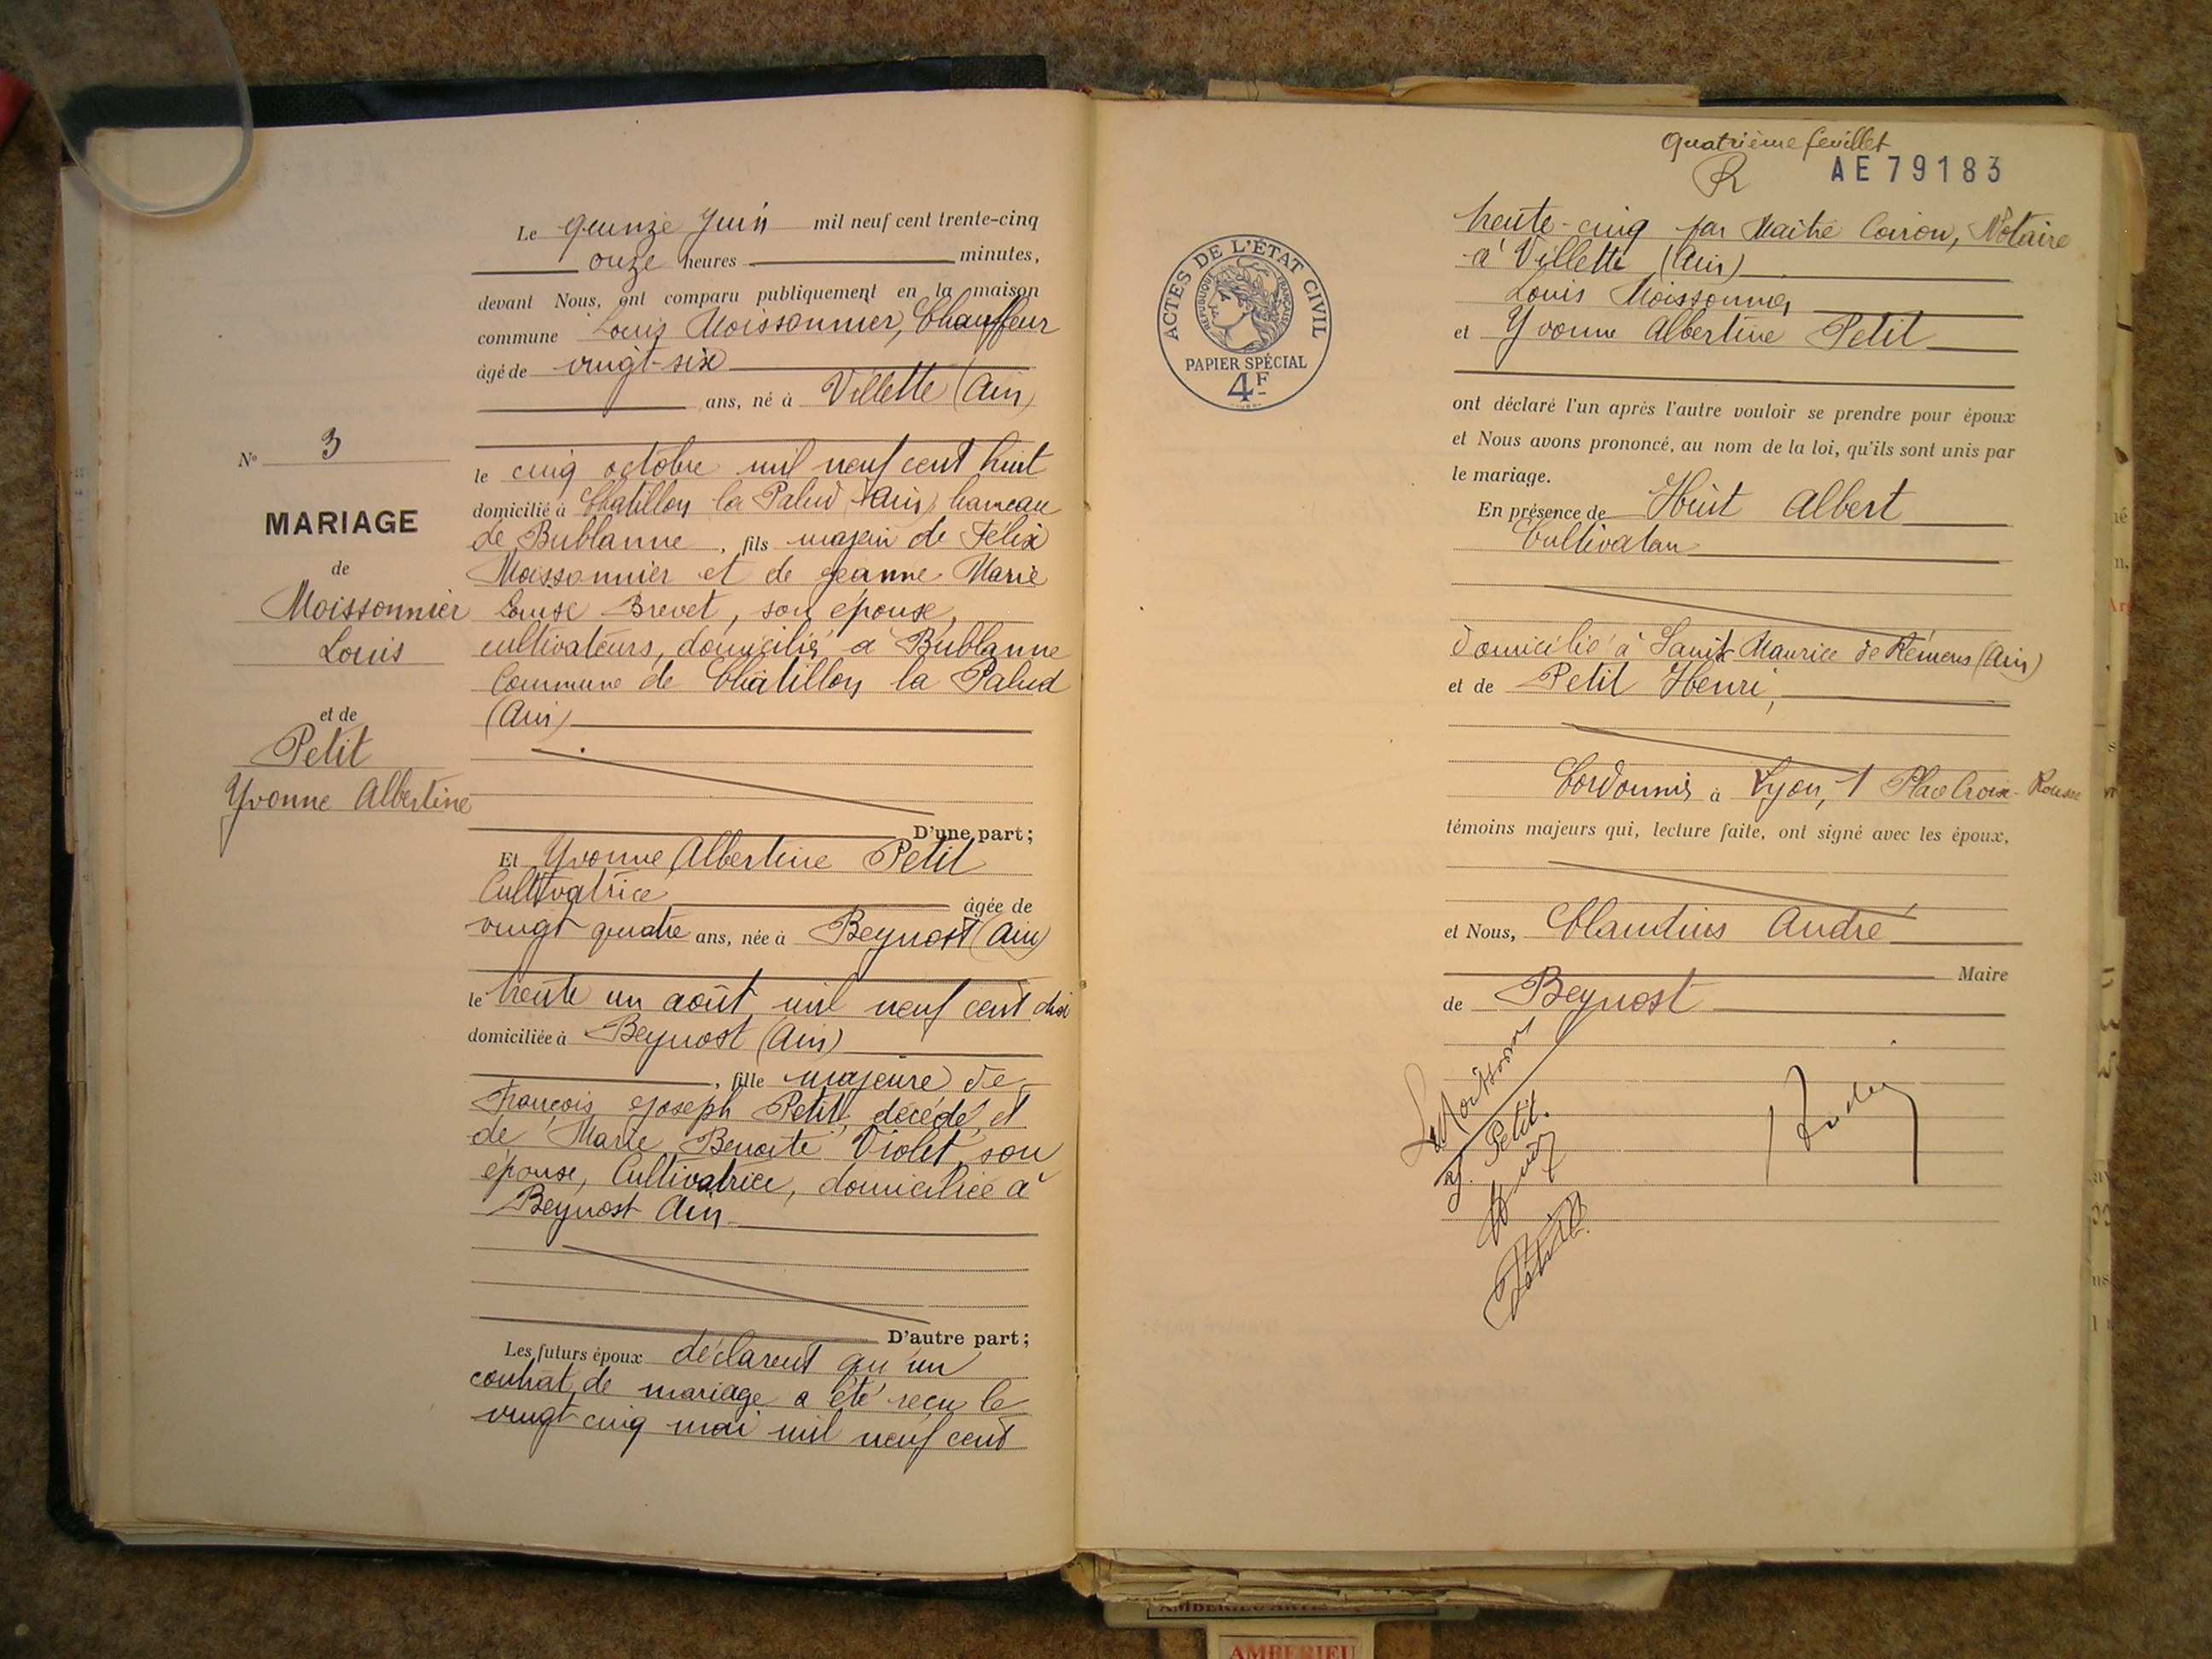 Le quinze Juin mil neuf cent trente-cinq
onze heures minutes,
devant Nous, ont comparu publiquement en la maison
commune Louis Moissonnier, Chauffeur
âgé de vingt-six
ans, né à Villette (Ain)
No 3
le cinq octobre mil neuf cent huit
domicilié à Chatillon la Palud (Ain) hameau
MARIAGE
de Bublanne, fils majeur de Félix
de
Moissonnier et de Jeanne Marie
Moissonnier
Louise Brevet, son épouse,
Louis
cultivateurs, domiciliés à Bublanne
Commune de Châtillon la Palud
et de
(Ain)
Petit
Yvonne Albertine
D'une part;
Et Yvonne Albertine Petit
Cultivatrice âgée de
vingt quatre ans, née à Beynost (Ain)
le trente un août mil neuf cent dix
domiciliée à Beynost (Ain)
, fille majeure de
François Joseph Petit, décédé, et
de Marie Benoite Violet, son
épouse, Cultivatrice, domiciliée à
Beynost Ain
D'autre part;
Les futurs époux déclarent qu'un
contrat de mariage a été reçu le
vingt-cinq mai mil neuf cent
Quatrième feuillet
AE79183
trente-cinq par Maitre Notaire
à Villette (Ain)
Louis Moissonnier
et Yvonne Albertine Petit
ACTES DE L'ÉTAT CIVIL
RÉPUBLIQUE FRANÇAISE
PAPIER SPÉCIAL
4F
ont déclaré l'un après l'autre vouloir se prendre pour époux
et Nous avons prononcé, au nom de la loi, qu'ils sont unis par
le mariage.
En présence de Huit Albert
Cultivateur
domicilié à Saint Maurice de Rémens (Ain)
et de Petit Henri,
Cordonnier à Lyon, 1 Place Croix-Rousse
témoins majeurs qui, lecture faite, ont signé avec les époux,
et Nous, Claudius André
Maire
de Beynost
Y. Petit.
AMBERIEU